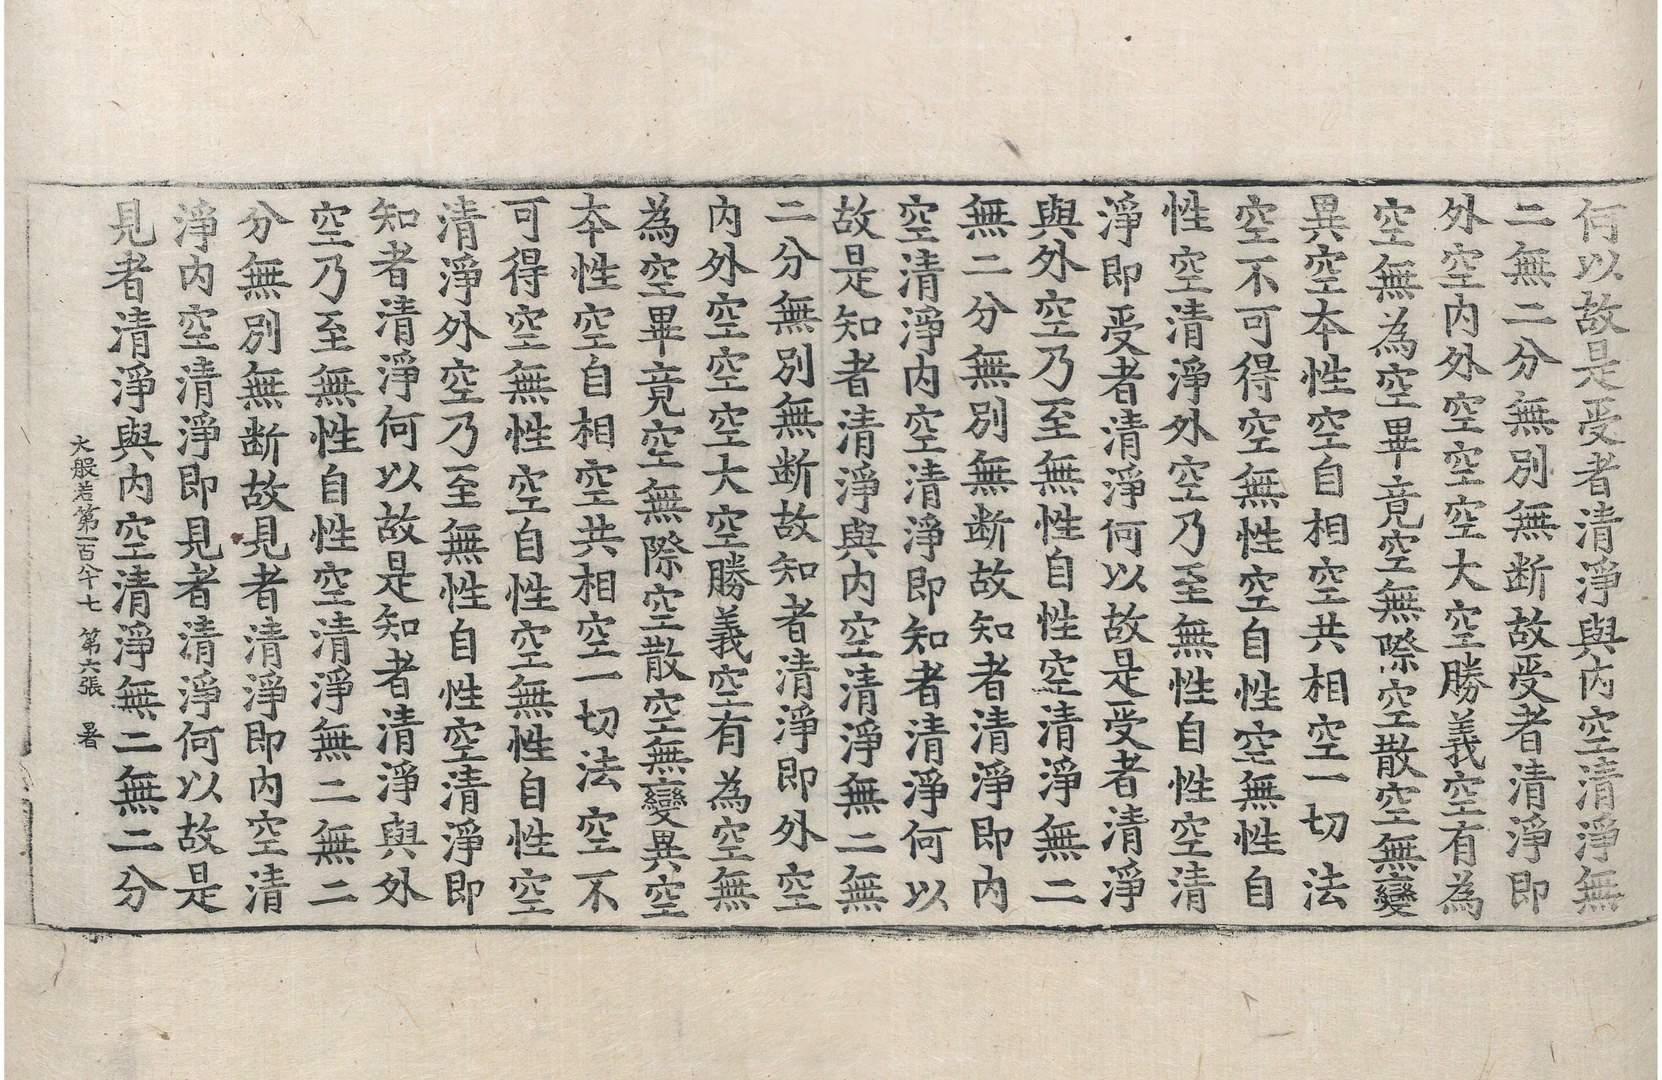 何以故是受者清淨與内空清淨無
二無二分無別無断故受者清淨即
外空内外空空空大空勝義空有為
空無為空畢竟空無際空散空無變
異空本性空自相空共相空一切法
空不可得空無性空自性空無性自
性空清淨外空乃至無性自性空清
淨即受者清淨何以故是受者清淨
與外空乃至無性自性空清淨無二
無二分無別無断故知者清淨即内
空清淨内空清淨即知者清淨何以
故是知者清淨與内空清淨無二無
二分無別無断故知者清淨即外空
内外空空空大空勝義空有為空無
為空畢竟空無際空散空無變異空
本性空自相空共相空一切法空不
可得空無性空自性空無性自性空
清淨外空乃至無性自性空清淨即
知者清淨何以故是知者清淨與外
空乃至無性自性空清淨無二無二
分無別無断故見者清淨即内空清
淨内空清淨即見者清淨何以故是
見者清淨與内空清淨無二無二分
大般若第一百八十七 第六張 暑